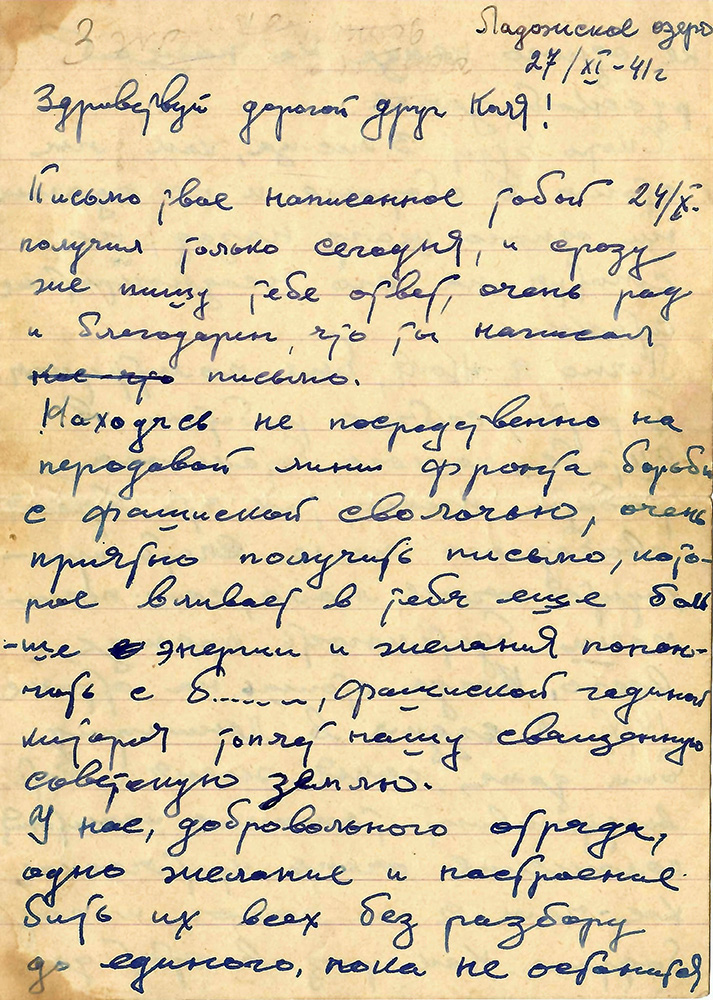 3
Ладожское озеро
27/XI-41г
Здравствуй дорогой друг Коля!
Письмо твое написанное тобой 24/X.
получил только сегодня, и сразу
же пишу тебе ответ, очень рад
и благодарен, что ты написал
кое-что письмо.
Находясь не посредственно на
передовой линии фронта борьбы
с фашиской сволочью, очень
приятно получить письмо, кото-
рое вливает в тебя еще боль
-ше энергии и желания покон-
чить с б......, фашиской гадиной
которая топчет нашу священную
советскую землю.
У нас, добровольного отряда,
одно желание и настроение
бить их всех без разбору
до единого, пока не останится